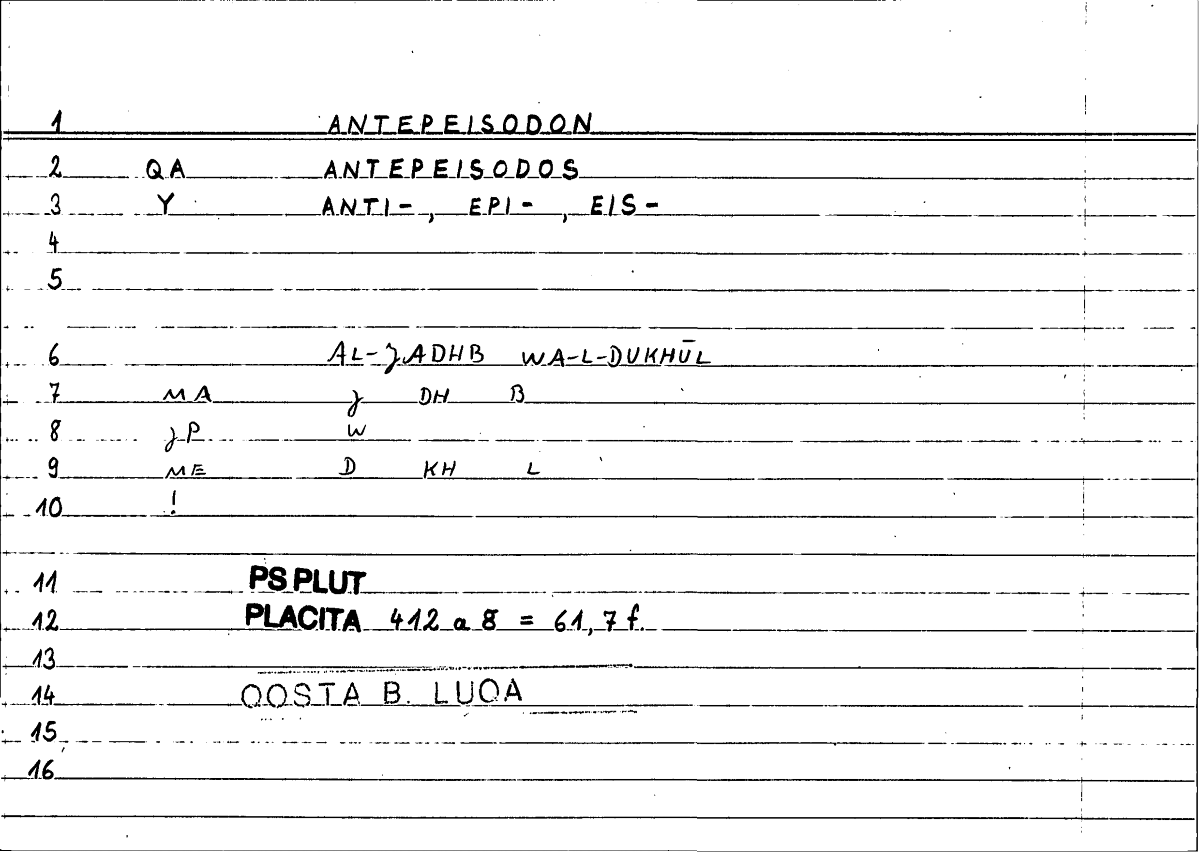 1 ANTEPEISODON
2 QA ANTEPEISODOS
3 Y ANTI-, EPI-, EIS-
4
5
6 AL-ǧADHB WA-L-DUKHŪL
7 MA ǧ DH B
8 ǧP W
9 ME D KH L
10 !
11 PS PLUT
12 PLACITA 412 a 8 = 61,7 f.
13
14 QOSTA B. LUQA
15
16